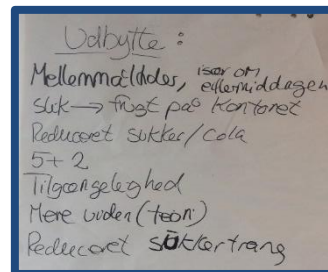 Udbytte:
Mellemmåltider, især om eftermiddagen
slik → frugt på kontoret
Reduceret sukker/cola
5+2
Tilgængelighed
Mere viden (teori)
Reduceret sukkertrang